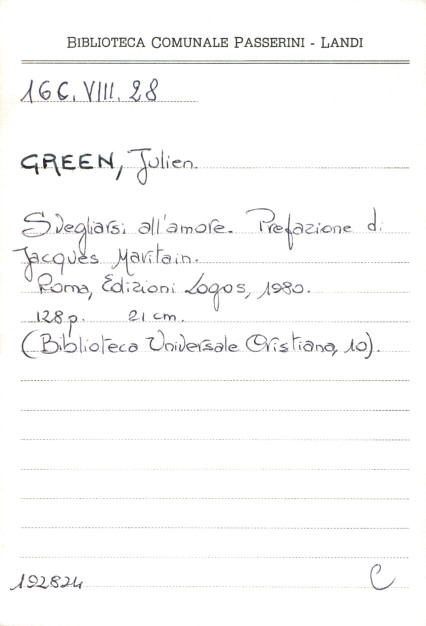 BIBLIOTECA COMUNALE PASSERINI - LANDI
16C. VIII. 28
GREEN, Julien.
Svegliarsi all'amore. Prefazione di
Jacques Maritain.
Roma, Edizioni Logos, 1980.
128 p. 21 cm.
(Biblioteca Universale Cristiana, 10).
192824 C